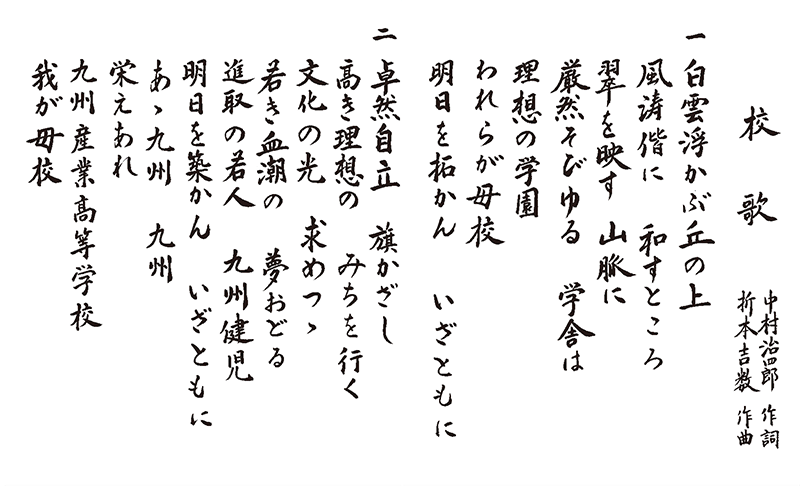 校歌
中村治四郎 作詞
折本吉数 作曲
一 白雲浮かぶ丘の上
風涛偕に 和すところ
翠を映す 山脈に
厳然そびゆる 学舎は
理想の学園
われらが母校
明日を拓かん いざともに
二 卓然自立 旗かざし
高き理想の みちを行く
文化の光 求めつゝ
若き血潮の 夢おどる
進取の若人 九州健児
明日を築かん いざともに
あゝ九州 九州
栄えあれ
九州産業高等学校
我が母校